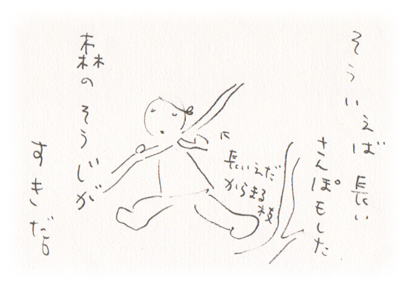 そういえば 長い
さんぽもした
長いえだ
からまる枝
森のそうじが
すきだ